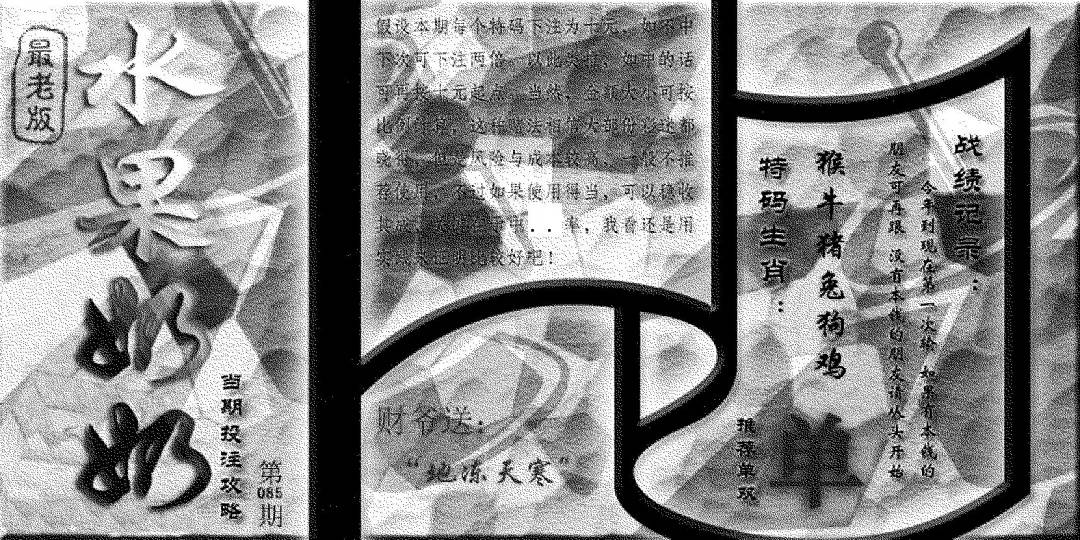 最老版
水果奶奶
当期投注攻略
第
085
期
假设本期每个特码下注为十元，如不中
下次可下注两倍，以此类推，如中的话
可再按十元起点，当然，金额大小可按
风险与成本较高，一般不推
荐使用，不过如果使用得当，可以稳收
中..率，我看还是用
比较好吧！
财爷送：
“地冻天寒”
战绩记录：
今年到现在第一次输 如果有本钱的
朋友可再跟 没有本钱的朋友请从头开始
猴牛猪兔狗鸡
特码生肖：
推荐单双
单